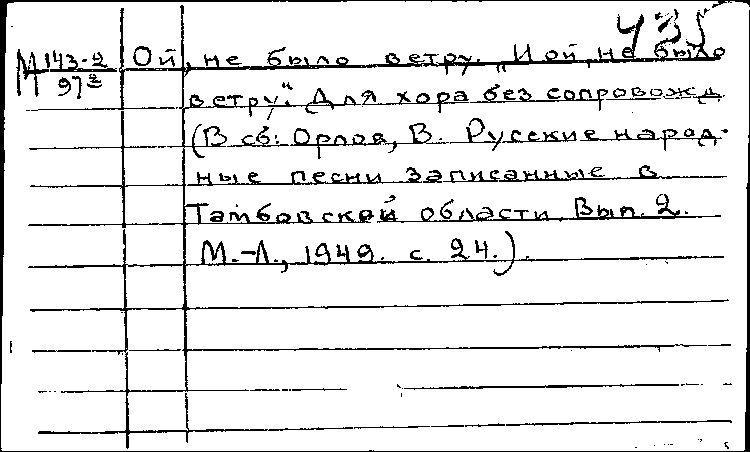 435
М 143-2 Ой, не было ветру. „И ой, не было
97² ветру". Для хора без сопровожд.
(В сб: Орлов, В. Русские народ-
ные песни записанные в
Тамбовской области. Вып. 2.
М.-Л., 1949. с. 24.).